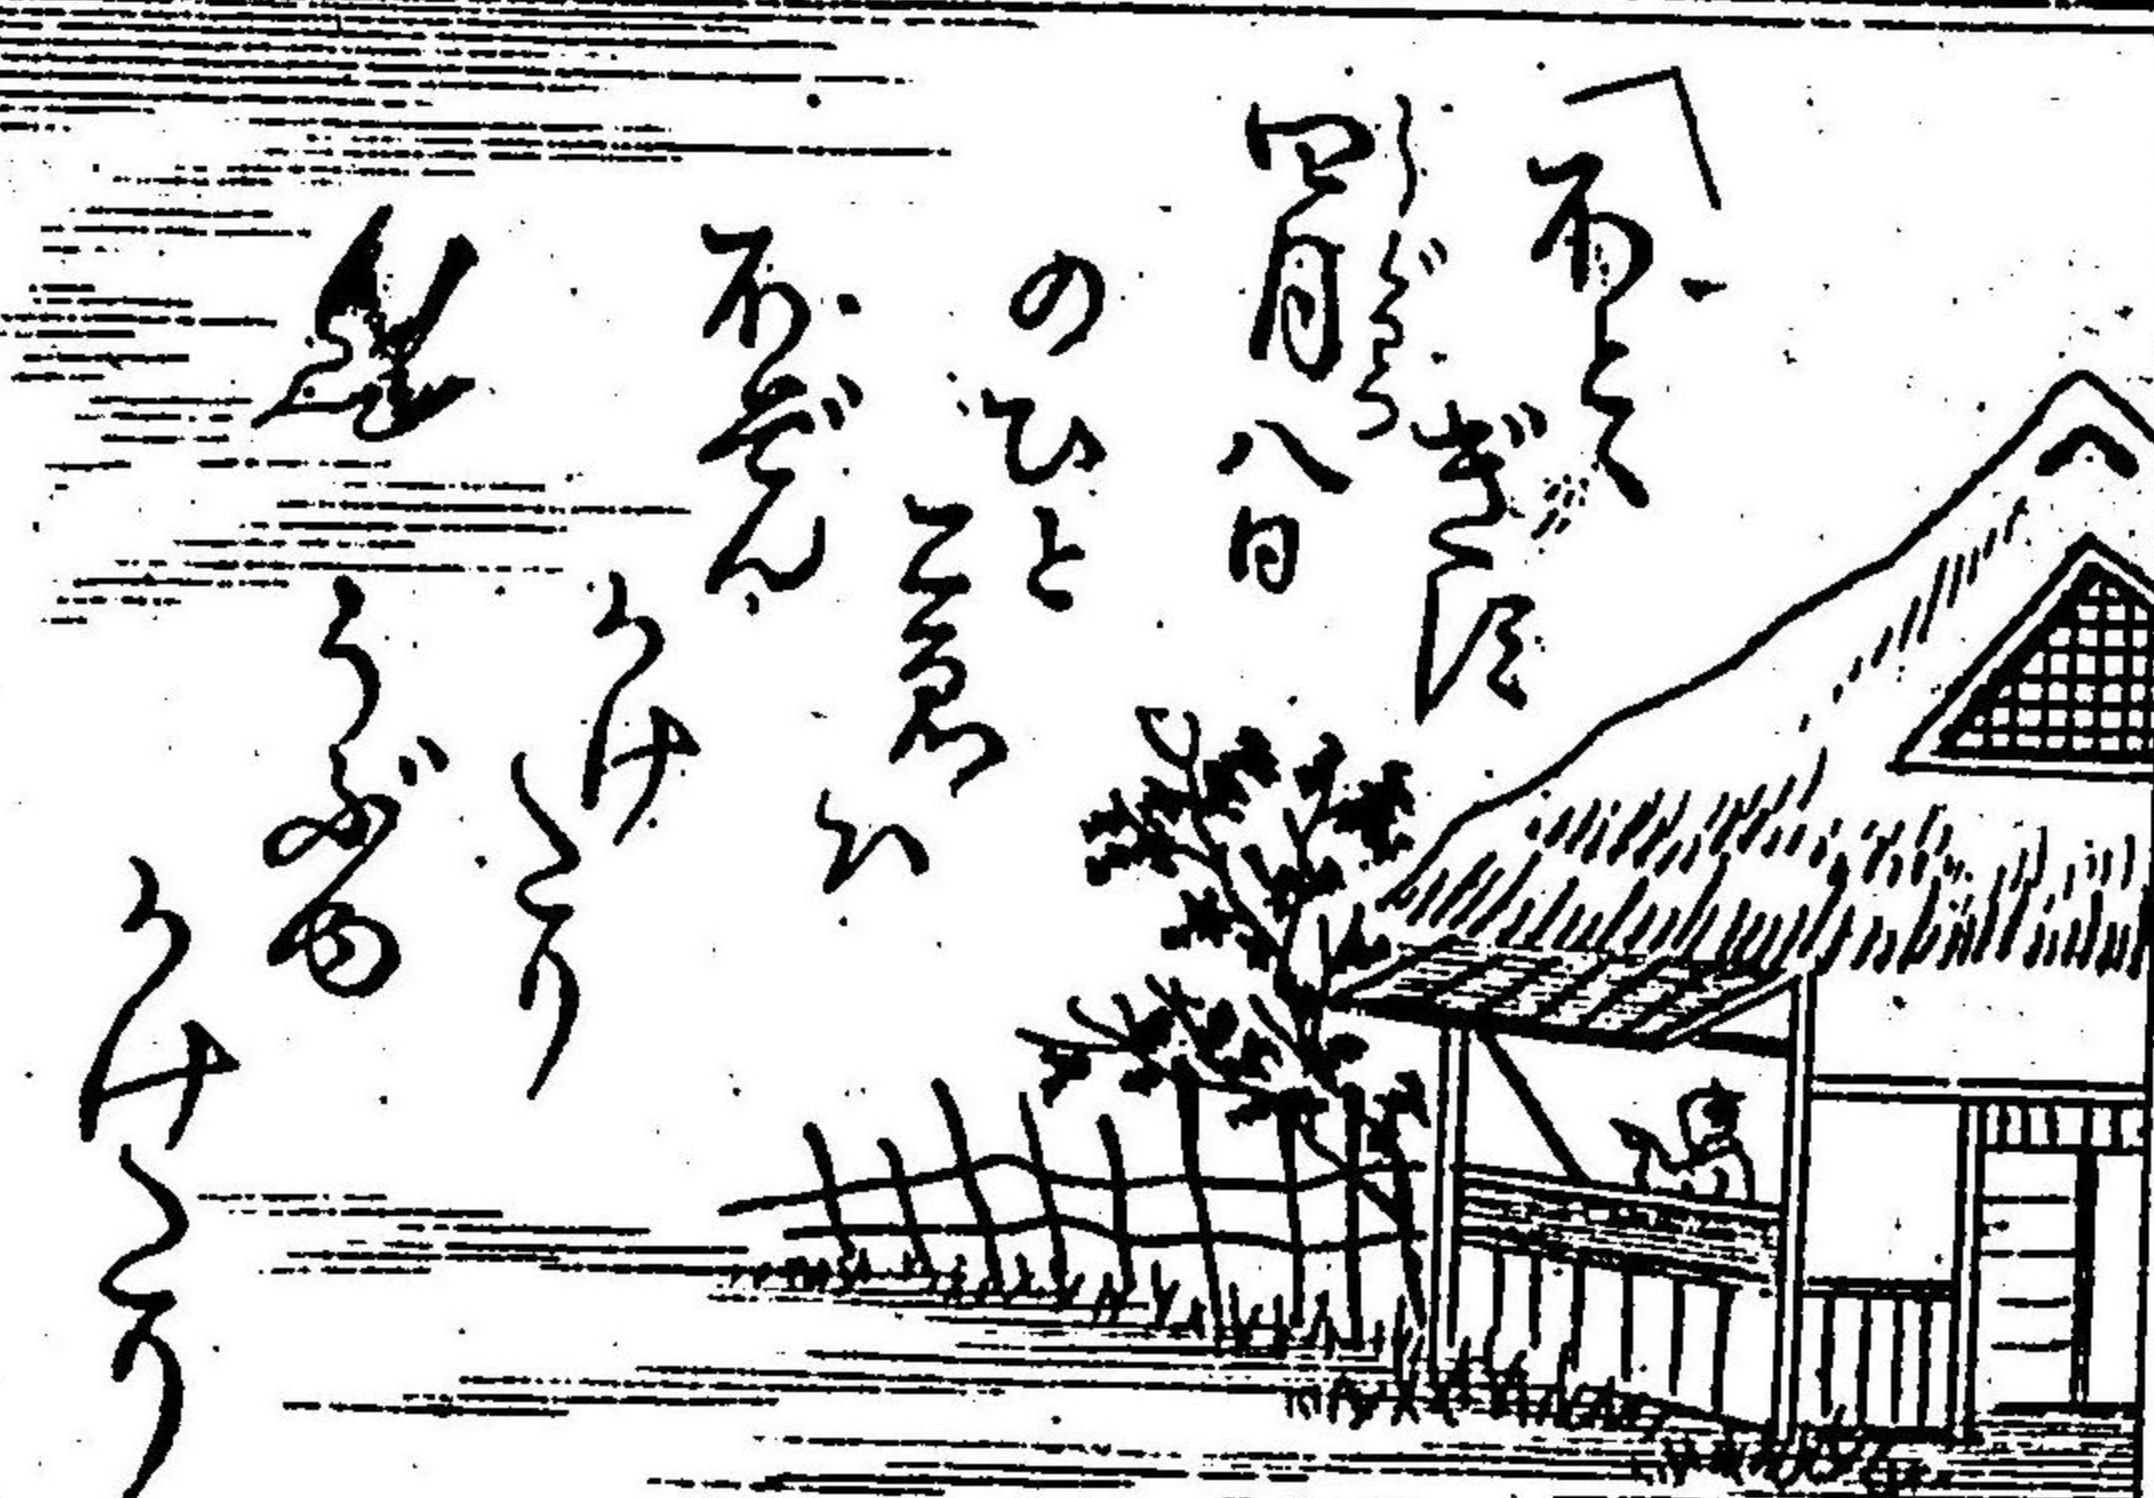 ほとゝ
ぎす
四月八日
のひと
こゑ
ハ
ほぞん
かけ
たり
うぶゆ
かけ
たり